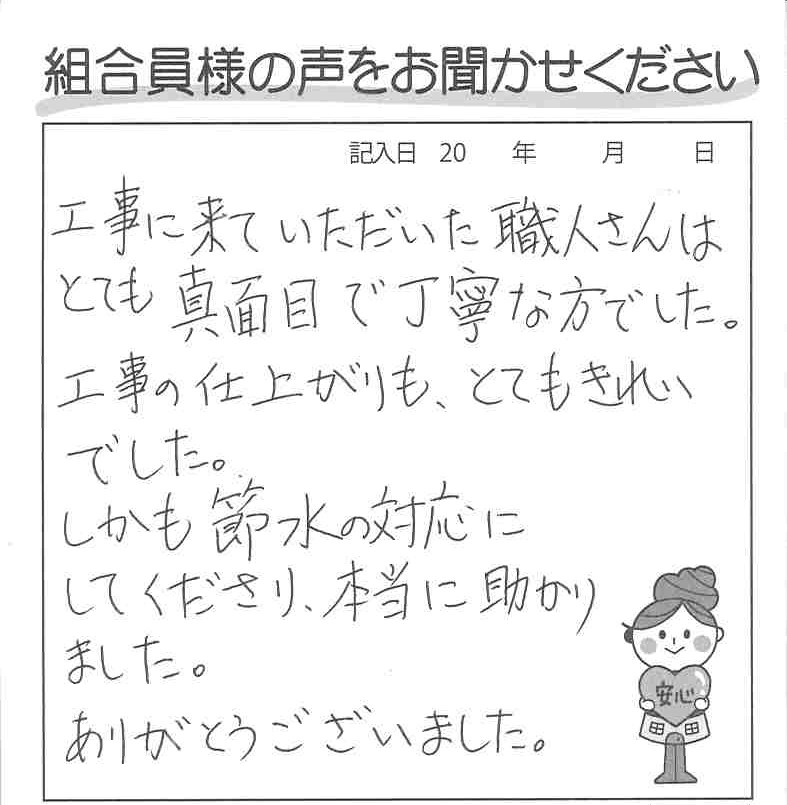 組合員様の声をお聞かせください
記入日 20 年 月 日
工事に来ていただいた職人さんは
とても真面目で丁寧な方でした。
工事の仕上がりも、とてもきれい
でした。
しかも節水の対応に
してくださり、本当に助かり
ました。
ありがとうございました。
安心